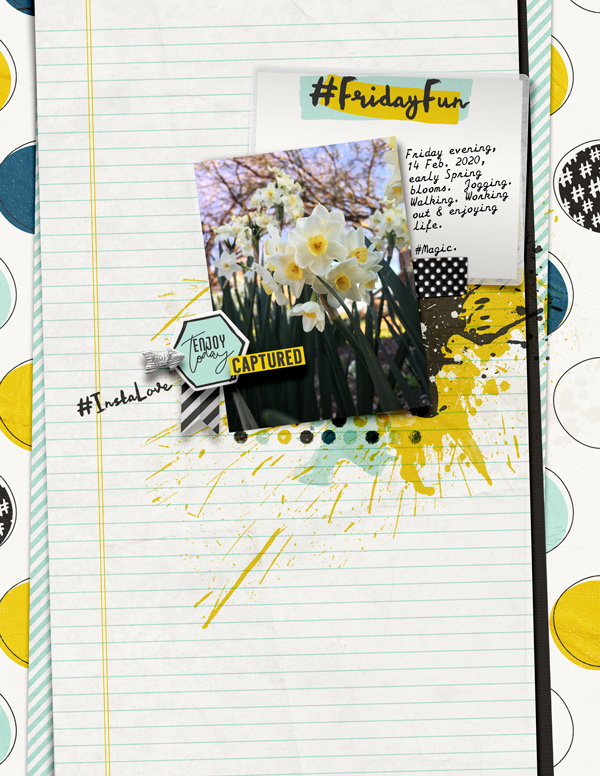 #FridayFun
Friday evening,
14 Feb. 2020,
early Spring
blooms. Jogging.
Walking. Working
out & enjoying
life.
#Magic.
ENJOY
today
CAPTURED
#InstaLove